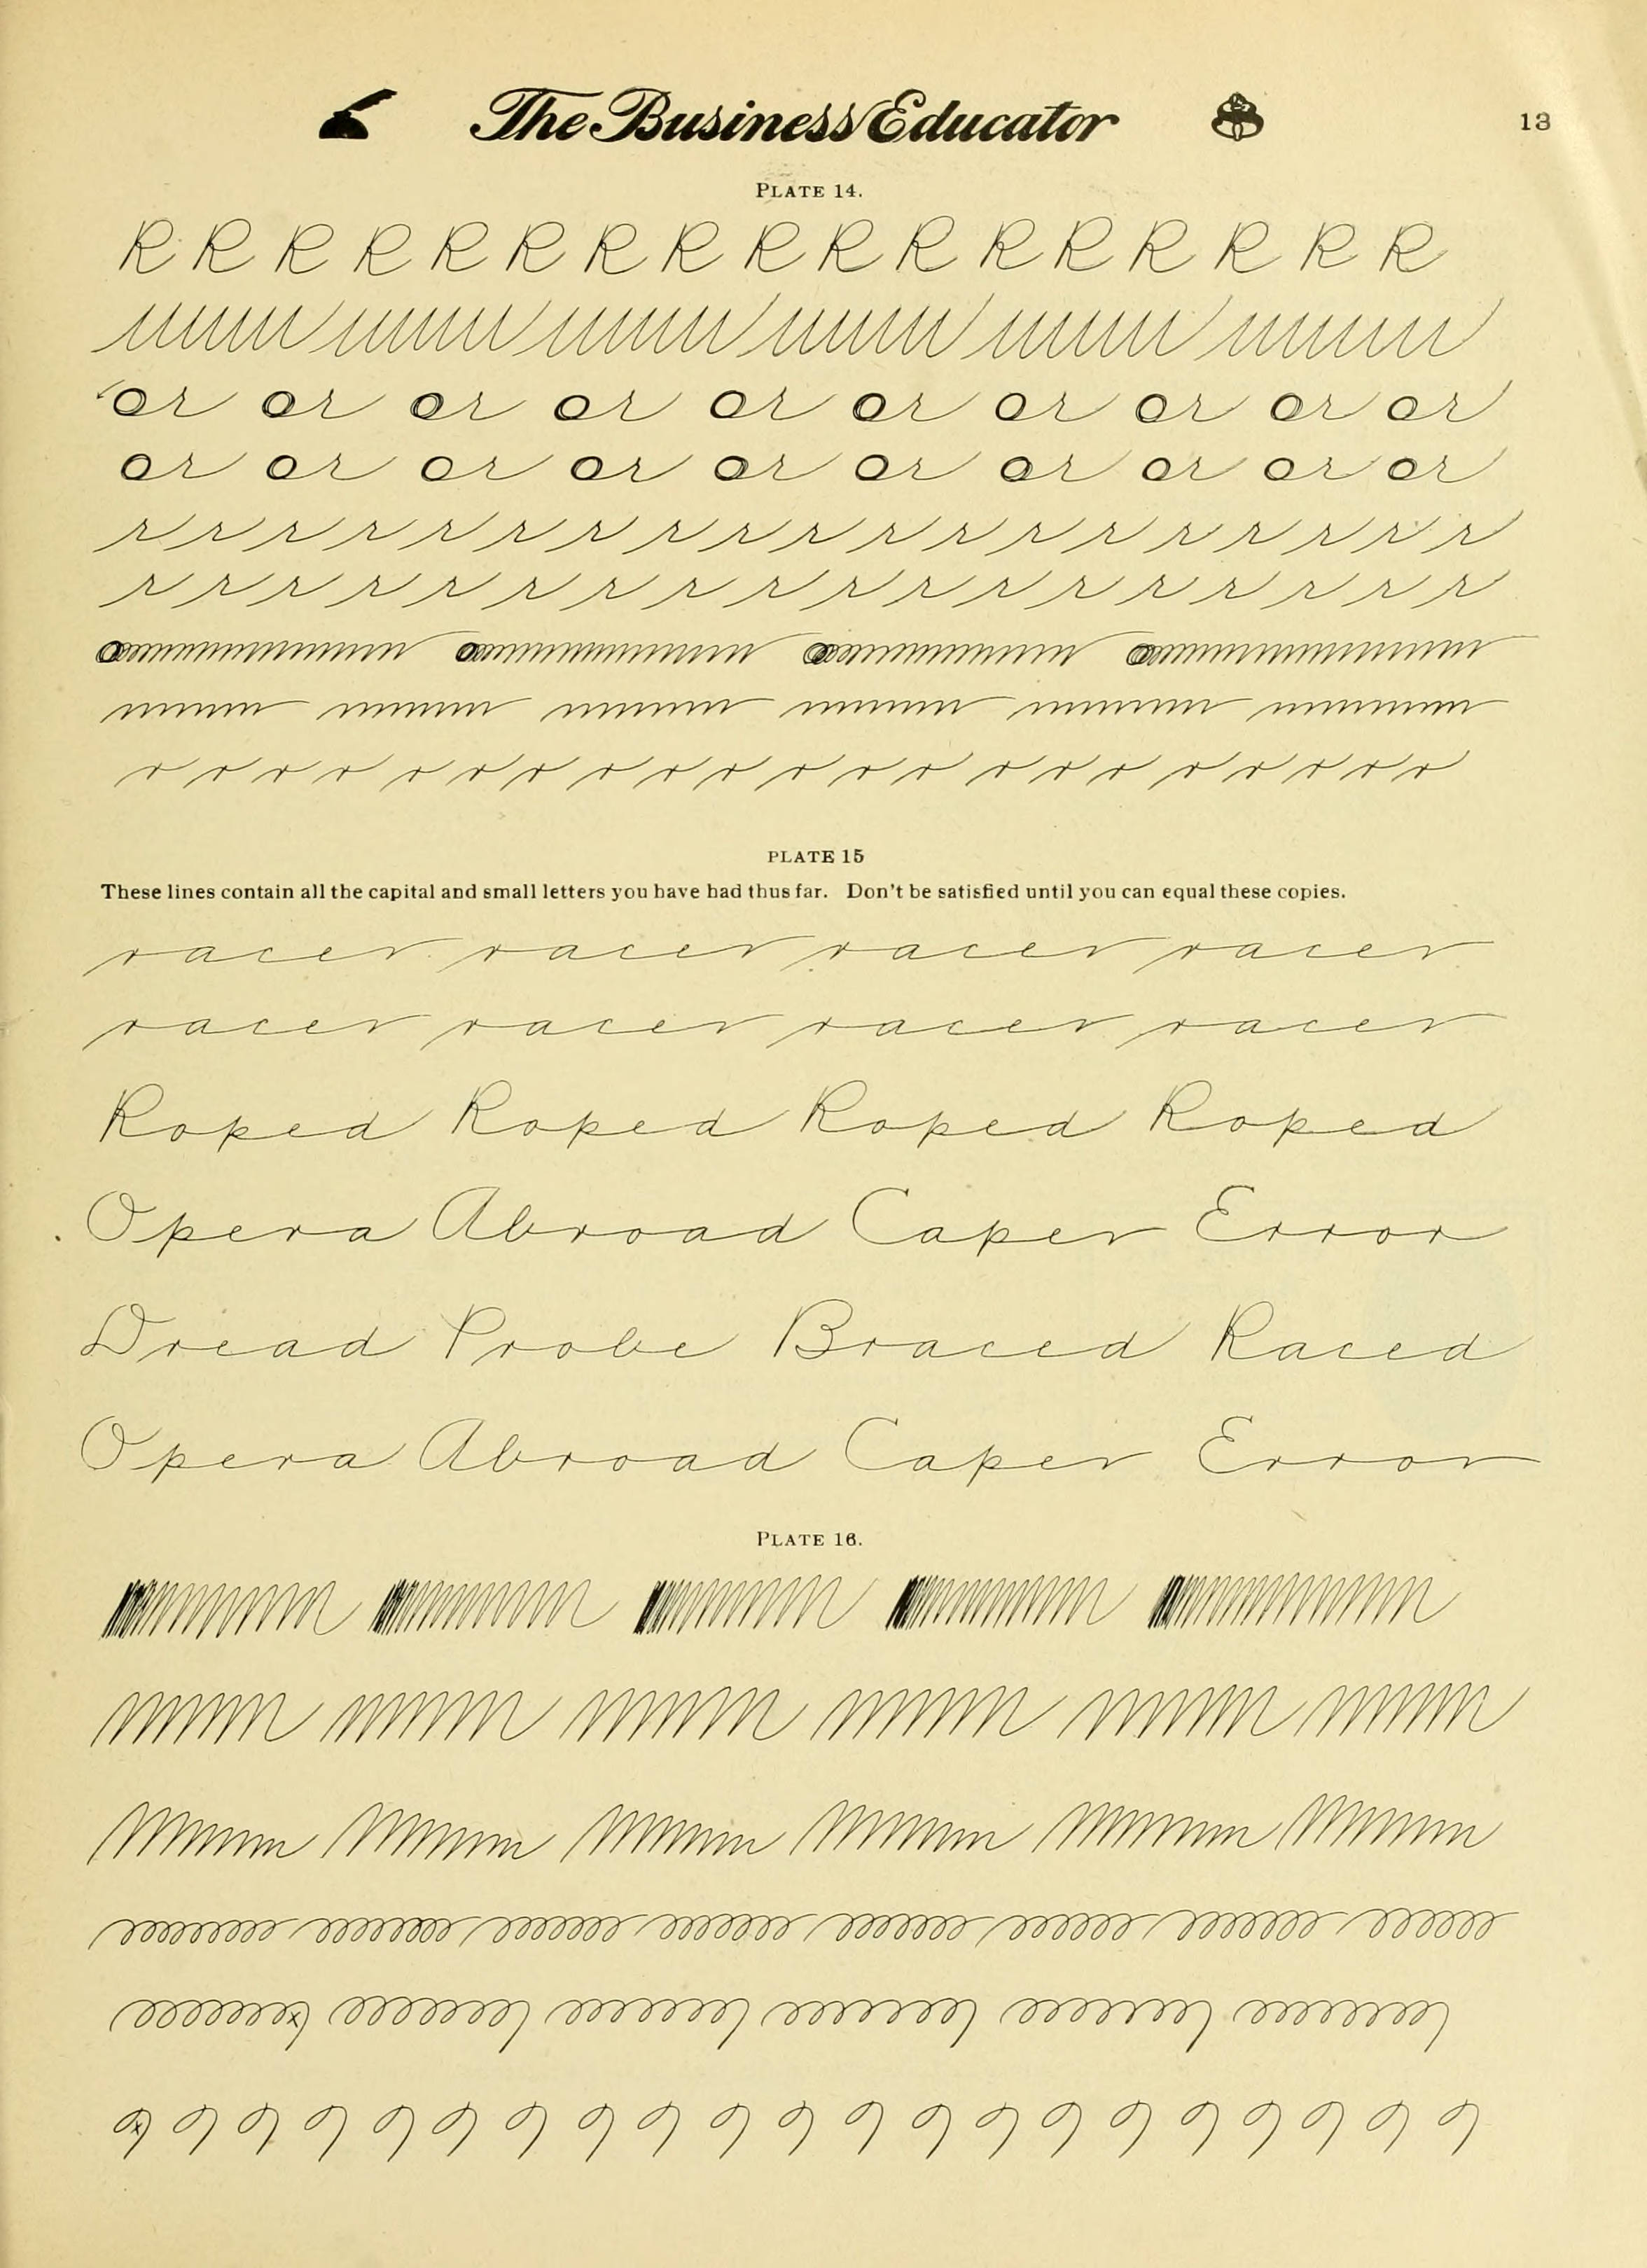 The Business Educator 13
PLATE 14.
R R R R R R R R R R R R R R R R R
or or or or or or or or or or
or or or or or or or or or or
r r r r r r r r r r r r r r r r r r r
r r r r r r r r r r r r r r r r r r
r r r r r r r r r r r r r r r r r r r r r
PLATE 15
These lines contain all the capital and small letters you have had thus far. Don't be satisfied until you can equal these copies.
racer racer racer racer
racer racer racer racer
Roped Roped Roped Roped
Opera Abroad Caper Error
Dread Probe Braced Raced
Opera Abroad Caper Error
PLATE 16.